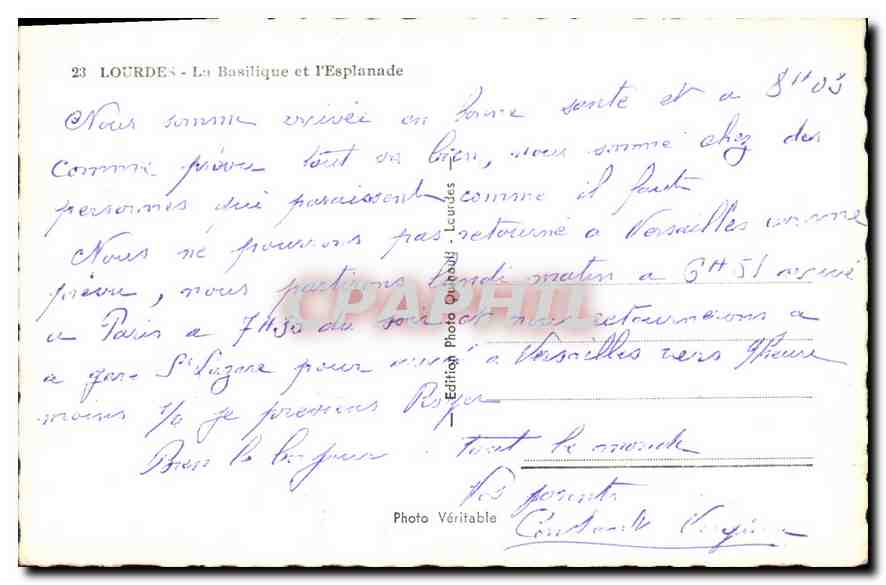 23 LOURDES - La Basilique et l'Esplanade
Nous somme arrivée en bonne santé et a 8H03
comme prévu tout va bien, nous somme chez des
personnes qui paraissent comme il faut
Nous né pourrons pas retourné a Versailles comme
prévu, nous partirons lundi matin a 6H51 arrivé
a Paris a 7H30 du soir et nous retournerons a
a gare St Lazare pour arrivé a Versailles vers 9heure
moins 1/4 je previens Roger
Bien le bonjour tout le monde
Vos parents
Constant Virginie
Edition Photo - Lourdes
Photo Véritable
CPAPHIL